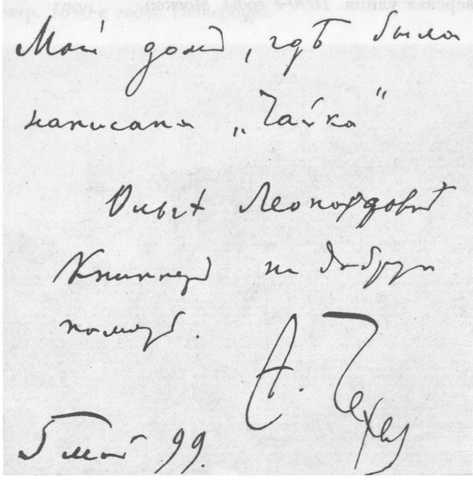 Мой домъ, гдѣ была
написана „Чайка“
Ольгѣ Леонардовнѣ
Книпперъ на добрую
память.
А. Чехов
5 май 99.